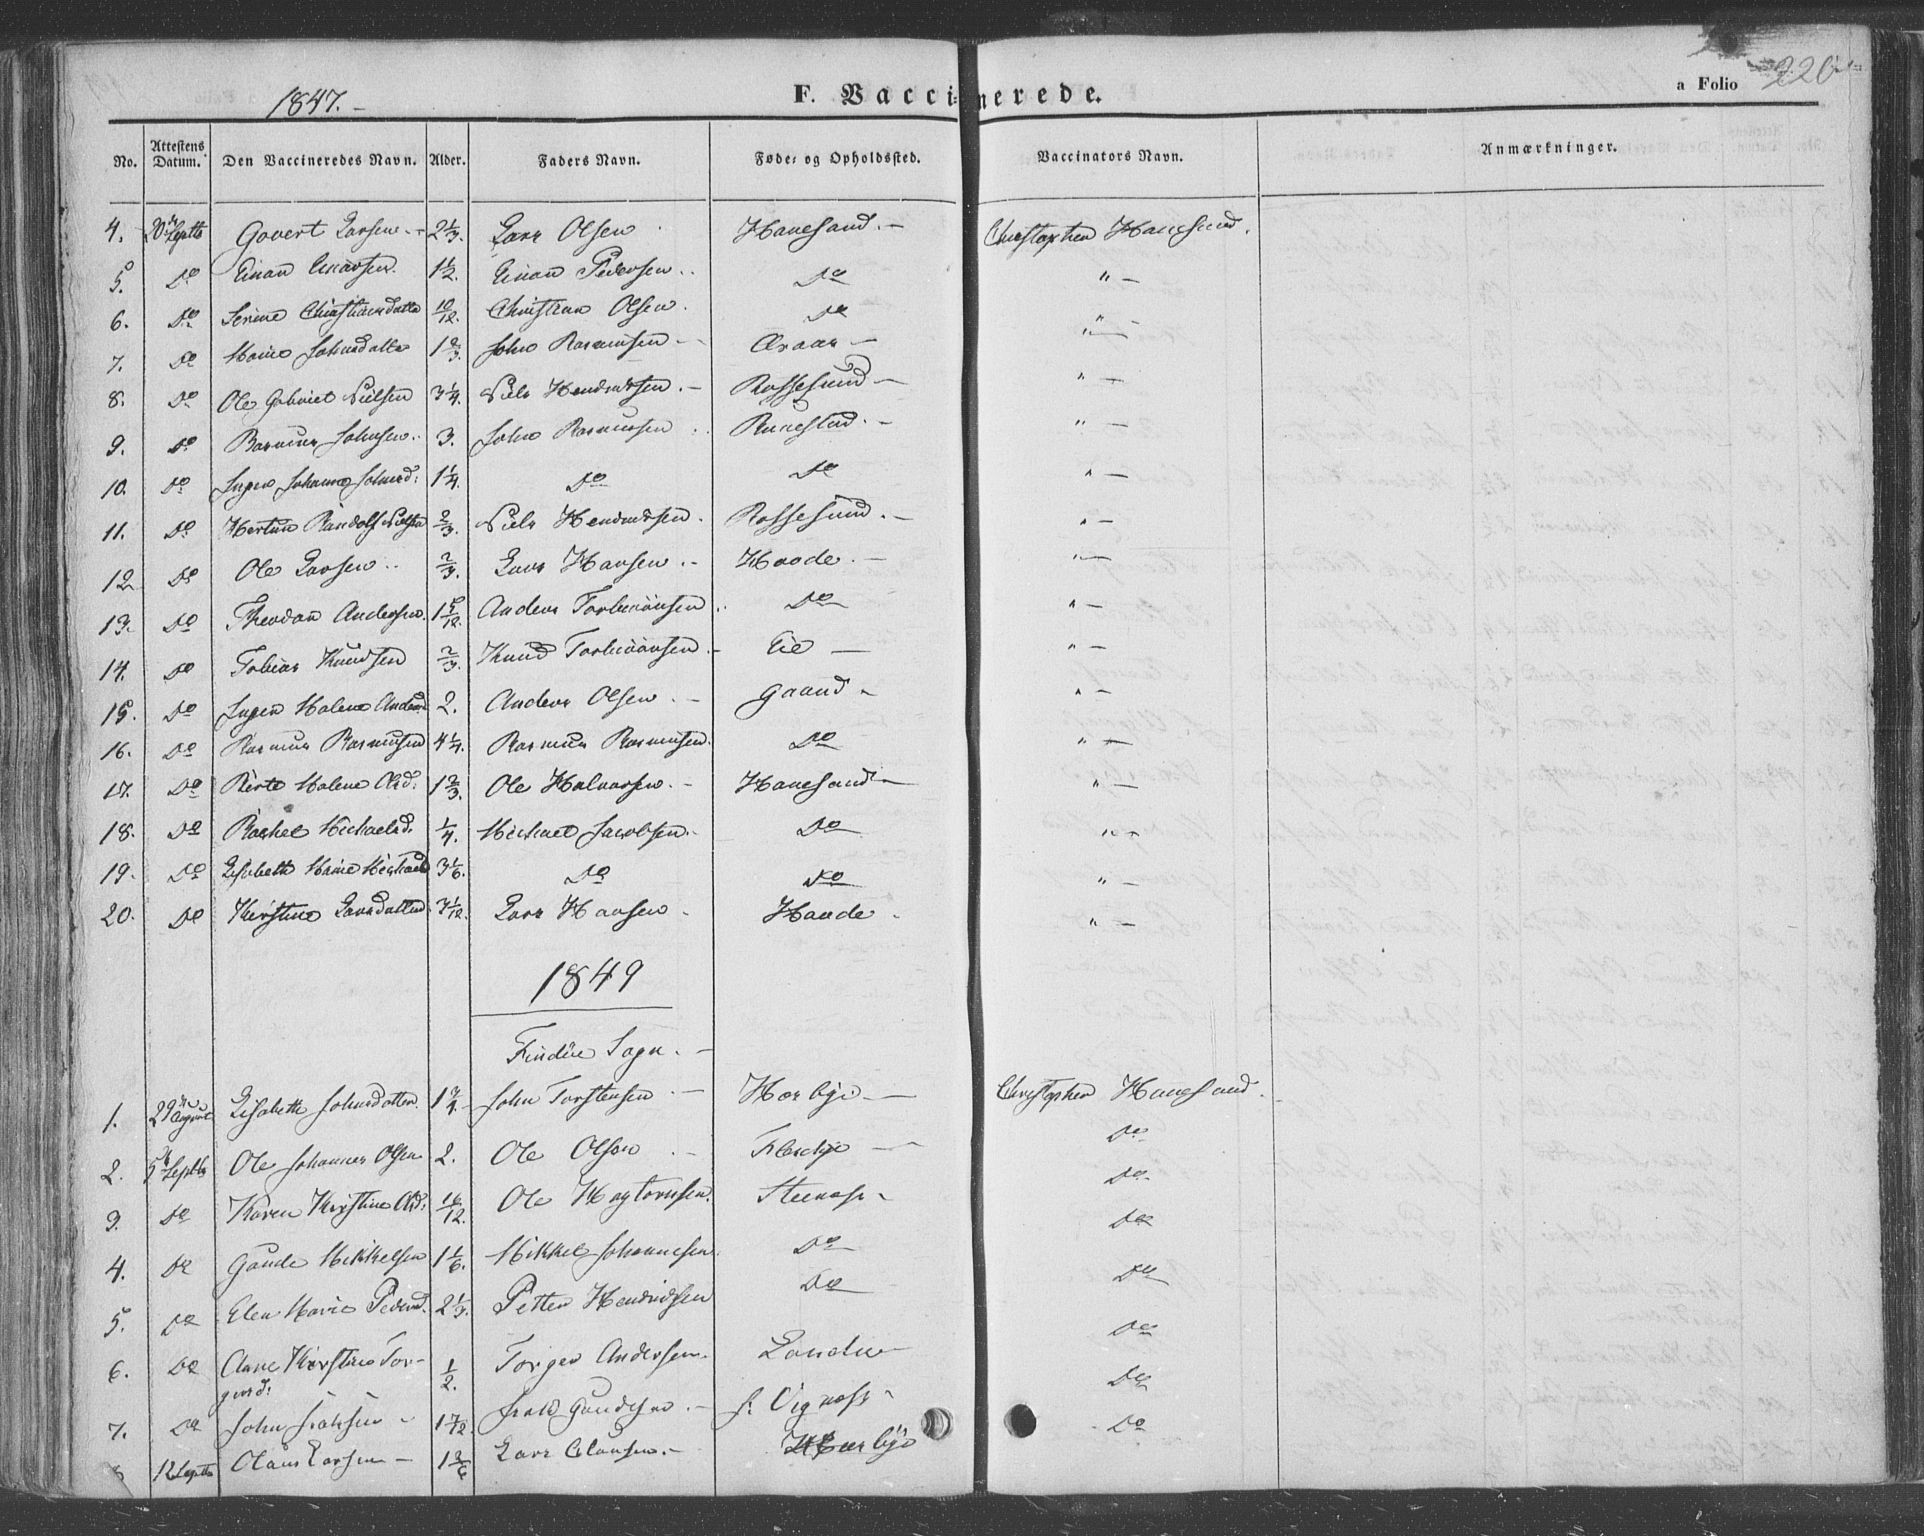 1847. F. Vaccinerede. a Folio 226
No. Attestens Datum. Den Vaccineredes Navn. Alder. Faders Navn. Føde- og Opholdssted. Vaccinators Navn. Anmærkninger.
4. 20 Septbr Govert Larsen 2 1/3. Lars Olsen Hanesand. Christopher Hanesand.
5. Do Einar Einarsen. 1 1/2. Einar Pedersen Do " —
6. Do Serine Christiansdatter 10/12. Christian Olsen. Do "
7. Do Johnsdatter 1 2/3. John Rasmusen " —
8. Do Ole Gabriel Nielsen 3 1/4. Niels Hendriksen. Rossesund " —
9. Do Rasmus Johnsen 3. John Rasmusen Runestad. " —
10. Do Inger Johanne Johnsd: 1 1/4. Do Do " —
11. Do Randolf Nielsen 2/3. Niels Hendriksen. Rossesund. " —
12 Do Ole Larsen 2/3. Lars Hansen Haade. " —
13. Do Theodor Andersen 1 5/12. Anders Torbiönsen Do " —
14. Do Tobias Knudsen 2/3. Knud Torbiörnsen Eie " —
15. Do Inger Malene Andersd 2. Anders Olsen Gaard " —
16. Do Rasmus Rasmusen 4 1/4. Rasmus Rasmusen. Do " —
17. Do Berte Malene Olsd: 1 2/3. Ole Halvorsen. Hanesand " —
18. Do Rachel Michaelsd. 1/4. Michael Jacobsen. Do " —
19. Do Elisabeth Marie Michaels 3 1/6. Do Do " —
20. Do Kirstine Larsdatter 3 1/12. Lars Hansen Haade " —
1849
Findöe Sogn.
1. 29 August Elisabeth Johnsdatter. 1 3/4. John Torstensen Hærbye Christopher Hanesand.
2. 5 Septbr Ole Johannes Olsen 2. Ole Olsen Fleskje Do
3. Do Karen Kirstine Olsd: Ole Steenass Do
4. Do Gaude Mikkelsen 1 1/6. Mikkel Johannesen. Do Do
5. Do Elen Marie Pedersd. 2 1/3. Petter Hendriksen Do Do
6. Do Ane Kirstine Torgersd: 1/2. Torger Andersen. Landu Do
7. Do John 1 7/12. Gaudesen. Vignass Do
12 Septbr Olaus Larsen 1 Lars Clausen. Hærbye Do